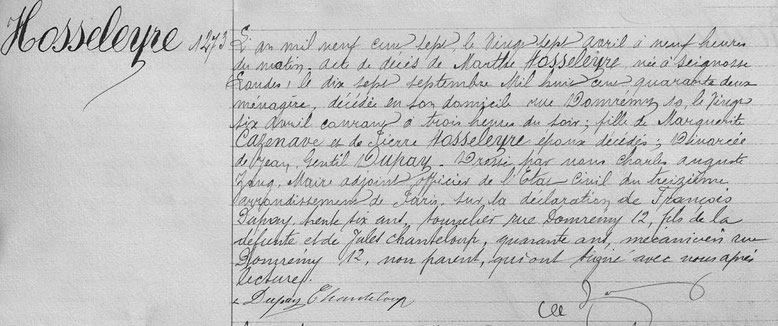 Hosseleyre 1273
L'an mil neuf cent sept, le Vingt sept Avril à neuf heures
du matin. Acte de décès de Marthe Hosseleyre née à Seignosse
Landes, le dix sept septembre Mil huit cent quarante deux
ménagère, décédée en son domicile rue Domrémy 10, le Vingt
six avril courant à trois heures du soir; fille de Marguerite
Cazenave et de Pierre Hosseleyre époux décédés; Divorcée
de Jean, Gentil Dupuy. Dressé par nous Charles Auguste
Maire adjoint officier de l'Etat Civil du treizième
arrondissement de Paris, sur la déclaration de François
Dupuy, trente six ans, tonnelier rue Domremy 12, fils de la
défunte et de Jules Chanteloup, quarante ans, mécanicien rue
Domrémy 12, non parent, qui ont signé avec nous après
lecture.
Dupuy Chanteloup